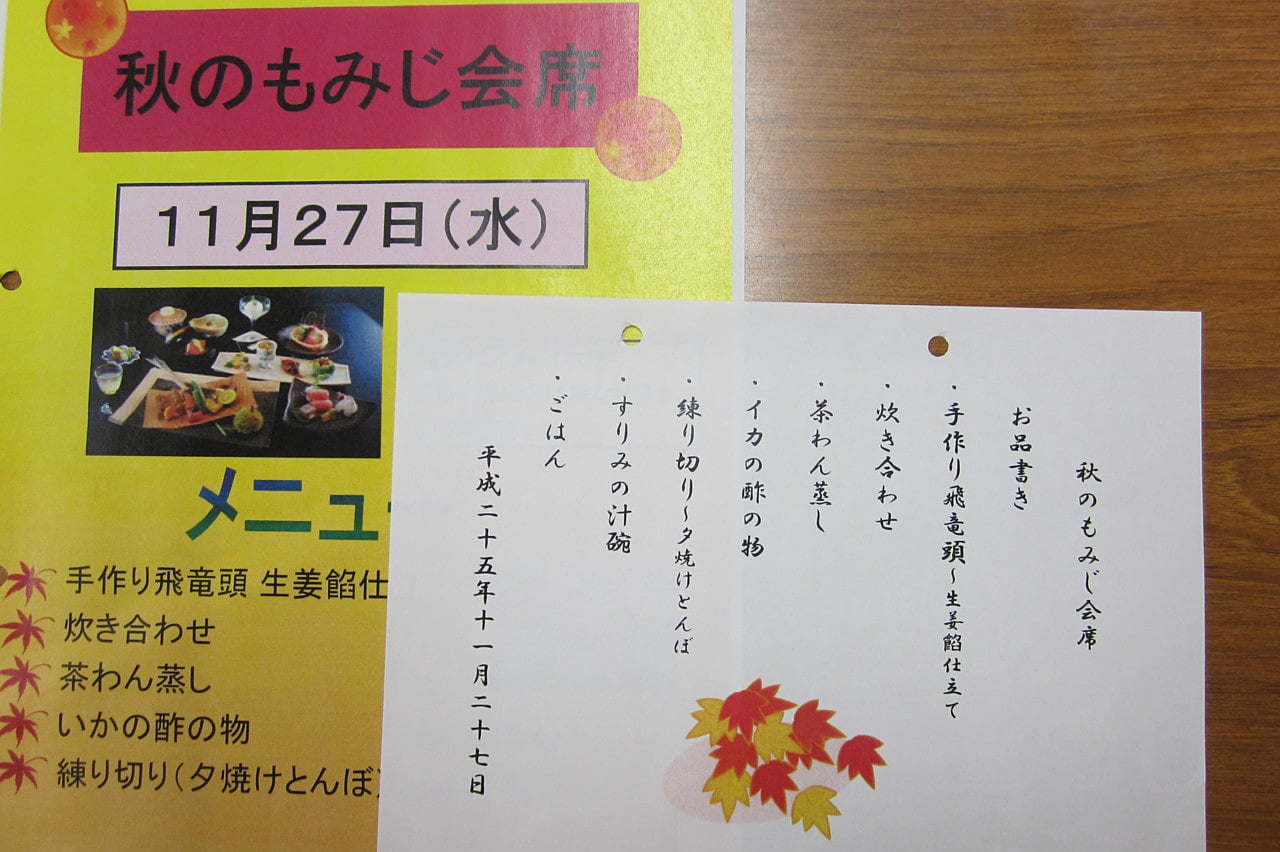 秋のもみじ会席
11月27日(水)
メニュー
手作り飛竜頭 生姜餡仕
炊き合わせ
茶わん蒸し
いかの酢の物
練り切り(夕焼けとんぼ)
秋のもみじ会席
お品書き
・手作り飛竜頭~生姜餡仕立て
・炊き合わせ
・茶わん蒸し
・イカの酢の物
・練り切り~夕焼けとんぼ
・すりみの汁碗
・ごはん
平成二十五年十一月二十七日